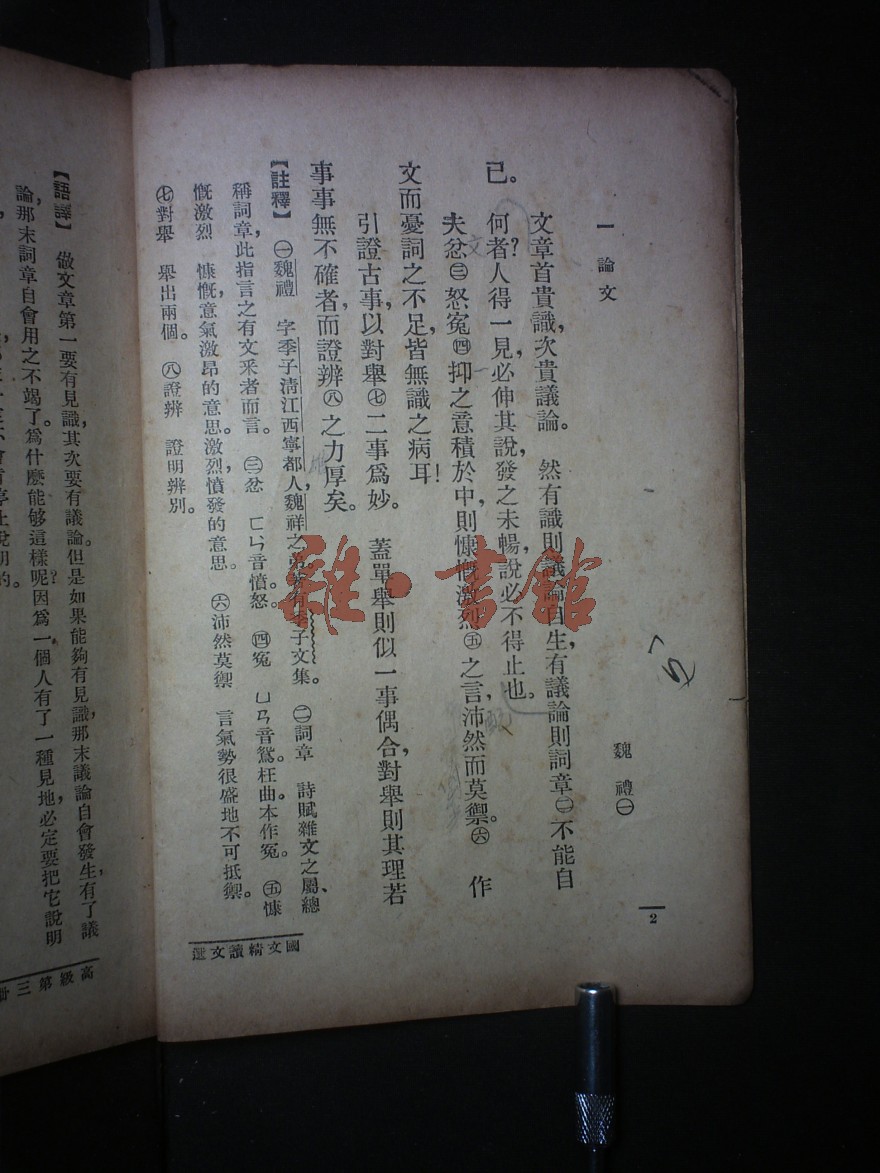 一　論文
魏　禮㊀
文章首貴識，次貴議論。　然有識則議論自生，有議論則詞章㊁不能自
已。　何者？人得一見，必伸其說，發之未暢，說必不得止也。
夫忿㊂怒冤㊃抑之意積於中，則慷慨激烈㊄之言，沛然而莫禦。㊅　作
文而憂詞之不足，皆無識之病耳！
引證古事，以對舉㊆二事爲妙。　蓋單舉則似一事偶合，對舉則其理若
事事無不確者，而證辨㊇之力厚矣。
【註釋】　㊀魏禮　字季子，淸江西寧都人，魏祥之弟，著有季子文集。　㊁詞章　詩賦雜文之屬，總
稱詞章，此指言之有文采者而言。　㊂忿　ㄈㄣ音憤，怒。　㊃冤　ㄩㄢ音鴛。枉曲。本作冤。　㊄慷
慨激烈　慷慨，意氣激昂的意思。激烈，憤發的意思。　㊅沛然莫禦　言氣勢很盛地不可抵禦。
㊆對舉　舉出兩個。　㊇證辨　證明辨別。
【語譯】　做文章第一要有見識，其次要有議論。但是如果能夠有見識，那末議論自會發生，有了議
論，那末詞章自會用之不竭了。爲什麽能够這樣呢？因爲一個人有了一種見地，必定要把它說明
2
國文精讀文選
高級第三册
雜·書館